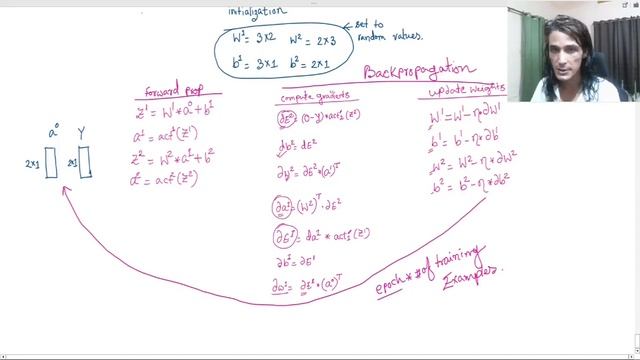 initialization
W¹ = 3×2 W² = 2×3
b¹ = 3×1 b² = 2×1
set to
random values.
Backpropagation
forward prop
z¹ = W¹*a⁰+b¹
a¹ = act¹(z¹)
z² = W²*a¹+b²
a² = act²(z²)
a⁰ Y
2×1 2×1
compute gradients
∂z² = (a-Y)*act²(z²)
∂b² = ∂z²
∂W² = ∂z²*(a¹)ᵀ
∂a¹ = (W²)ᵀ.∂z²
∂z¹ = da¹*act¹(z¹)
∂b¹ = ∂z¹
∂W¹ = ∂z¹*(a⁰)ᵀ
update weights
W¹ = W¹-η*∂W¹
b¹ = b¹-η*∂b¹
W² = W²-η*∂W²
b² = b²-η*∂b²
epoch * # of training
Examples.